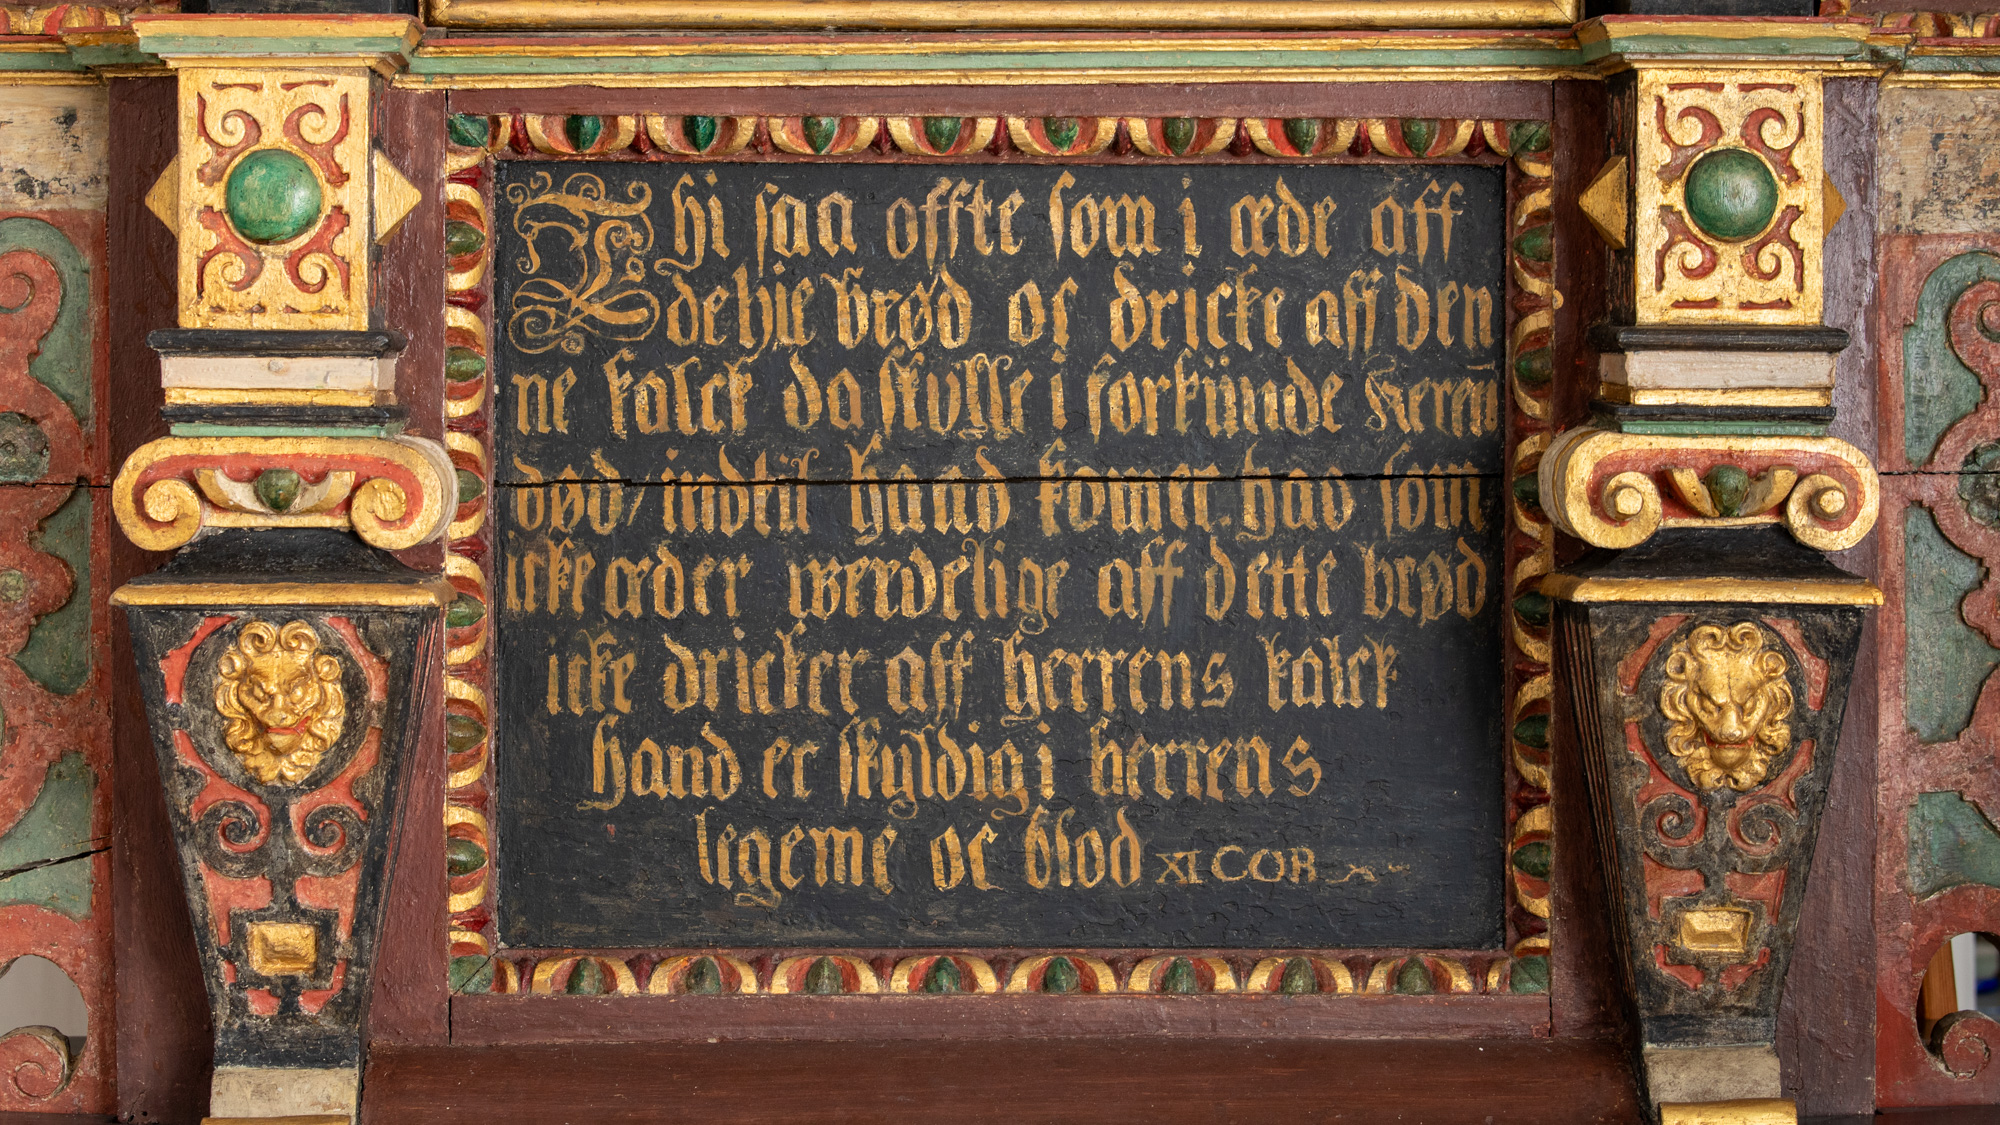 Thi saa offte som i æde aff
dehie brød oc dricke aff den
ne kalck da skylle i forkünde Herrenn
død / indtil hand komer. hvo som
icke æder werdelige aff dette brød
icke dricker aff herrens kalck
hand er skyldig i herrens
legeme oc blod XI COR